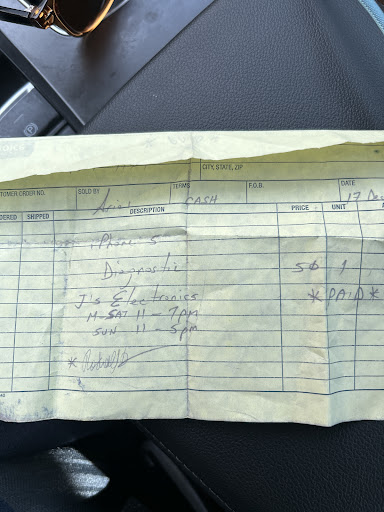 CITY, STATE, ZIP
TOMER ORDER NO. SOLD BY TERMS F.O.B. DATE
CASH 17 De
DERED SHIPPED DESCRIPTION PRICE UNIT
iPhone 5
Diagnostic 50 1
J's Electronics * PAID *
M-SAT 11 - 7pm
SUN 11 - 5pm
*